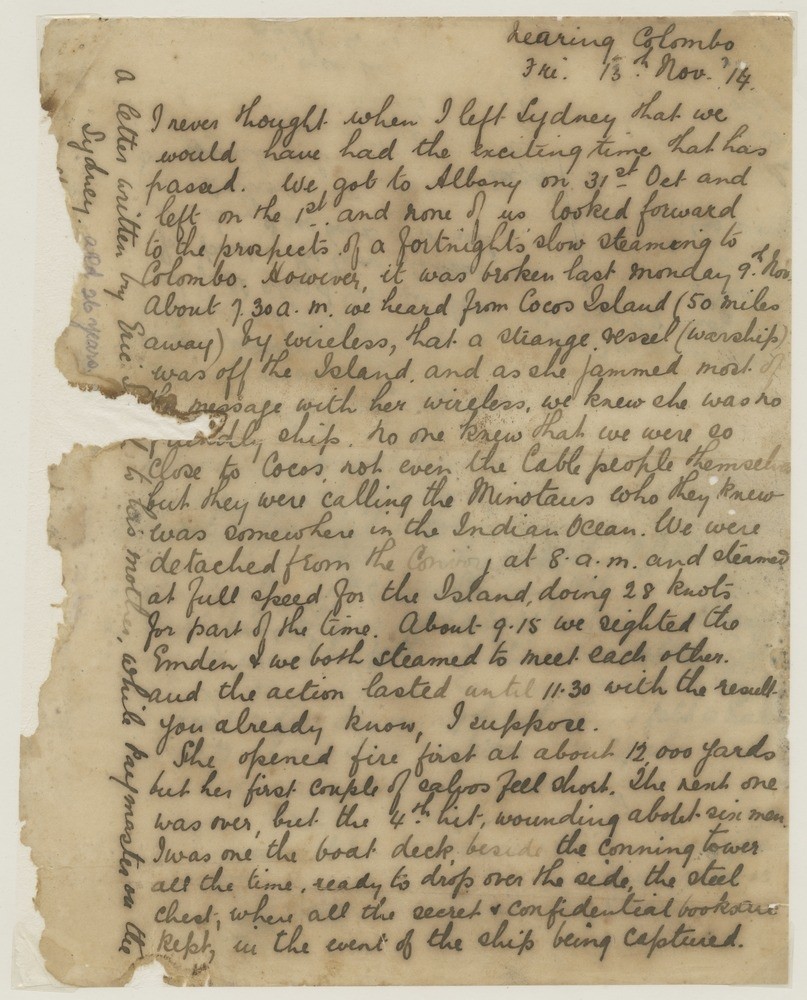 nearing Colombo
Fri. 13th Nov. '14.
I never thought when I left Sydney that we
would have had the exciting time that has
passed. We got to Albany on 31st Oct and
left on the 1st and none of us looked forward
to the prospects of a fortnights slow steaming to
Colombo. However, it was broken last monday 9th Nov.
About 7.30 a.m. we heard from Cocos Island (50 miles
away) by wireless, that a strange vessel (warship)
was off the Island and as she jammed most of
the message with her wireless, we knew she was no
friendly ship. No one knew that we were so
close to Cocos, not even the Cable people themselves
but they were calling the Minotaur who they knew
was somewhere in the Indian Ocean. We were
detached from the Convoy at 8.a.m. and steamed
at full speed for the Island, doing 28 knots
for part of the time. About 9.15 we sighted the
Emden & we both steamed to meet each other.
and the action lasted until 11.30 with the result
you already know, I suppose.
She opened fire first at about 12,000 yards
but her first couple of salvos fell short. The next one
was over, but the 4th hit, wounding about six men.
I was one the boat deck beside the conning tower
all the time, ready to drop over the side, the steel
chest, where all the secret & confidential books are
kept, in the event of the ship being captured.
A letter written by Eric to his mother, while Paymaster on the
Sydney. aged 26 years